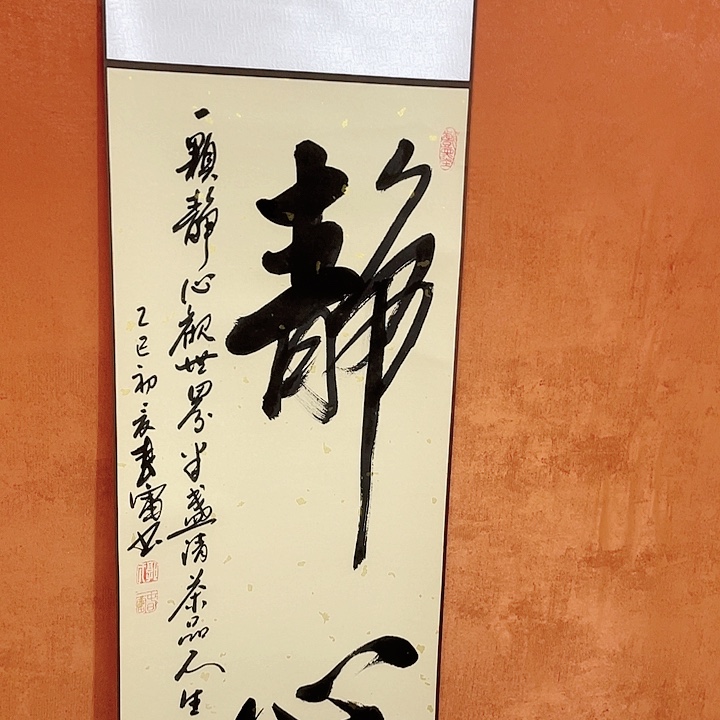 静心
一颗静心观世界半盏清茶品人生
乙巳初